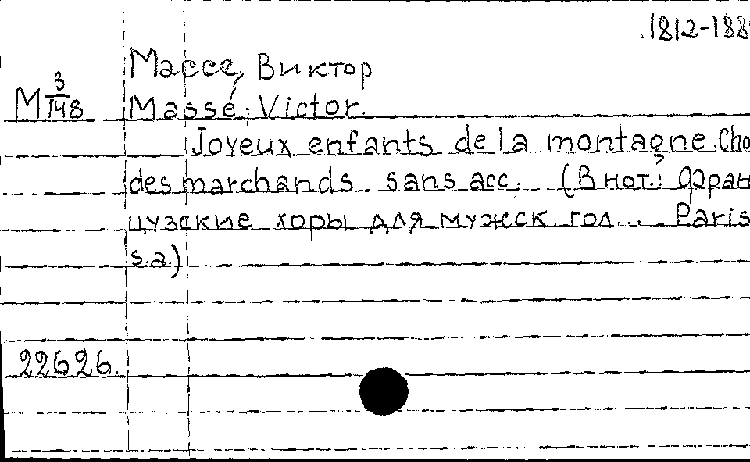 1812-188
Массе, Виктор
М 3/148 Massé, Victor.
Joyeux enfants de la montagne. Cho
des marchands. sans acc. (В нот.: Фран
цузские хоры для мужск. гол... Paris
s.a.)
22626.